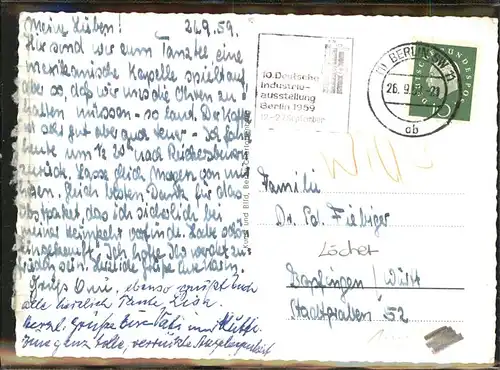 Meine Lieben! 26.9.59.
Hier sind wir zum Tanztee, eine
amerikanische Kapelle spielt auf,
aber so, daß wir uns die Ohren zu
halten müssen - so laut. Der Kaffee
ist sehr gut aber auch teuer - Ich fahre
heute um ½ 20 nach
zurück. Lasse dich
Recht besten Dank für das
paket, das ich sicherlich bei
meiner Heimkehr vorfinde. Habe schön
eingekauft. Ich hoffe Ihr werdet zu-
frieden sein. Herzliche Grüße
Gruß Omi, ebenso grüßt Euch
alle herzlich Tante
Herzl. Grüße Mutti
eine ganz tolle, verrückte
10. Deutsche
Industrie-
ausstellung
Berlin 1959
12.-27. September
BERLIN SW 11
26.9.59
ob
DEUTSCHE BUNDESPOST
10
Familie
Dr. Ed. Fiebiger
Löcher
Bopfingen / Württ
Stadtgraben 52